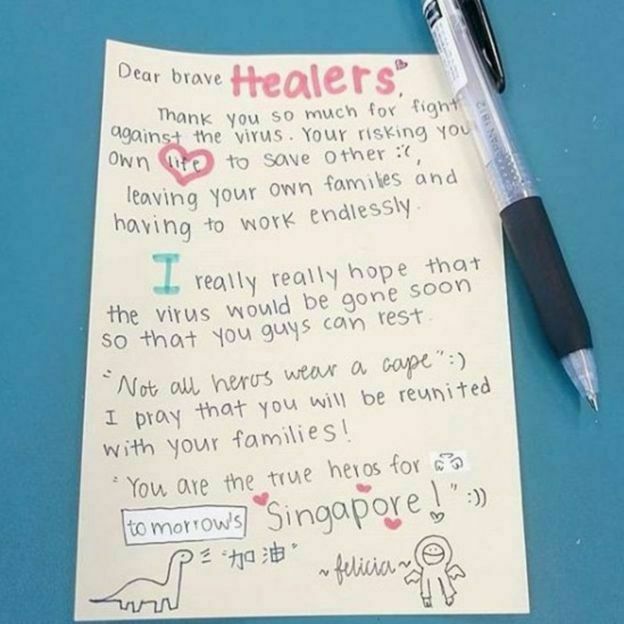 Dear brave Healers,
Thank you so much for fight
against the virus. Your risking you
own life to save other :'(,
leaving your own families and
having to work endlessly.
I really really hope that
the virus would be gone soon
so that you guys can rest.
"Not all heros wear a cape" :)
I pray that you will be reunited
with your families!
"You are the true heros for
tomorrow's Singapore!" :))
"加油" ~felicia~